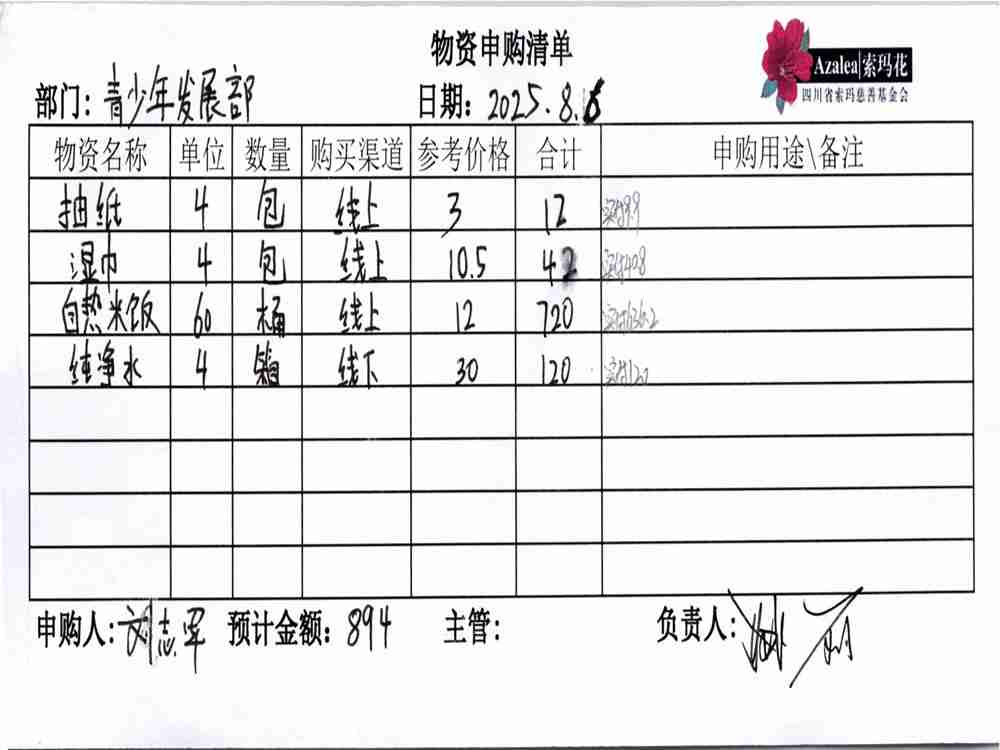 物资申购清单
Azalea|索玛花
四川省索玛慈善基金会
部门：青少年发展部 日期：2025.8.6
物资名称 单位 数量 购买渠道 参考价格 合计 申购用途\备注
抽纸 4 包 线上 3 12 实付9.9
湿巾 4 包 线上 10.5 42 实付40.8
自热米饭 60 桶 线上 12 720 实付636.2
纯净水 4 箱 线下 30 120 实付120
申购人：刘志军 预计金额：894 主管： 负责人：